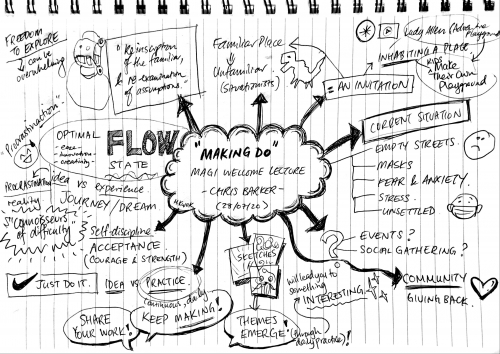 FREEDOM
TO EXPLORE
↳ can be
overwhelming
"Reinscription
of the familiar,
& re-examination
of assumptions."
Familiar Place
↓
Unfamiliar
(Situationists)
Lady Allen (Adventure
Playground)
INHABITING A PLACE
KIDS Make
Their Own
Playground
= AN INVITATION
CURRENT SITUATION
EMPTY STREETS.
MASKS
FEAR & ANXIETY.
STRESS
UNSETTLED
"Procrastination"
OPTIMAL
- ease
- innovation
- creativity
FLOW
STATE
PROCRASTINATION
idea vs experience
reality
JOURNEY/DREAM
"MAKING DO"
MAGI WELCOME LECTURE
- CHRIS BARKER
(28/07/20)
"Connoisseurs
of difficulty
Self-discipline
ACCEPTANCE
(COURAGE & STRENGTH)
JUST DO IT.
IDEA vs PRACTICE
continuous, daily
KEEP MAKING!
SHARE
YOUR WORK!
SKETCHES
THEMES
EMERGE! (through
daily practice)!
will lead you to
something
INTERESTING
? EVENTS?
SOCIAL GATHERING?
COMMUNITY
GIVING BACK.